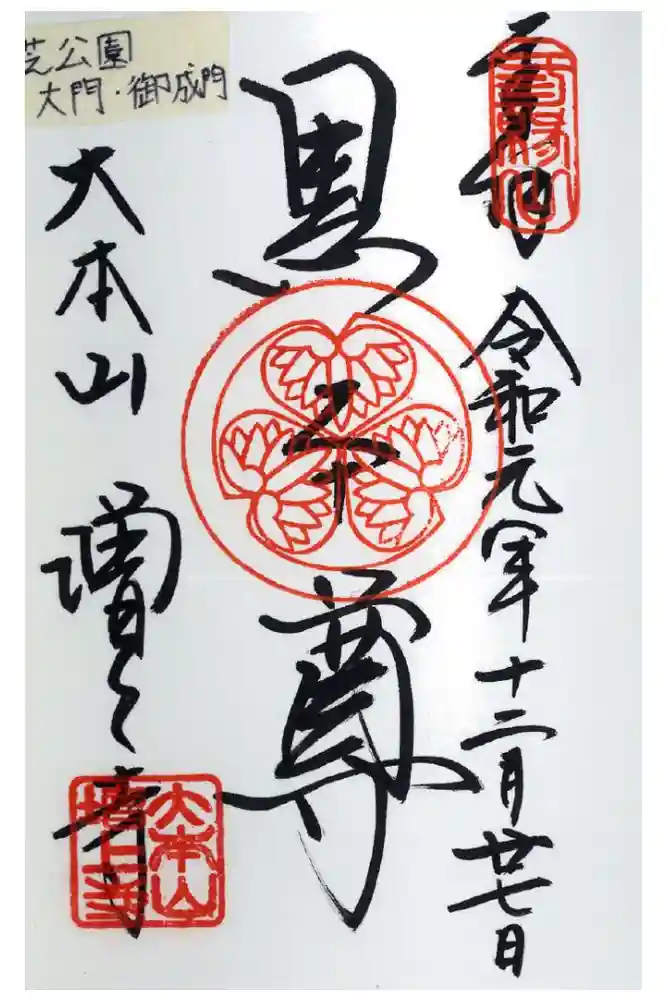 芝公園
大門・御成門
奉拝 令和元年十二月廿七日
黒本尊
大本山 増上寺
大本山
増上寺